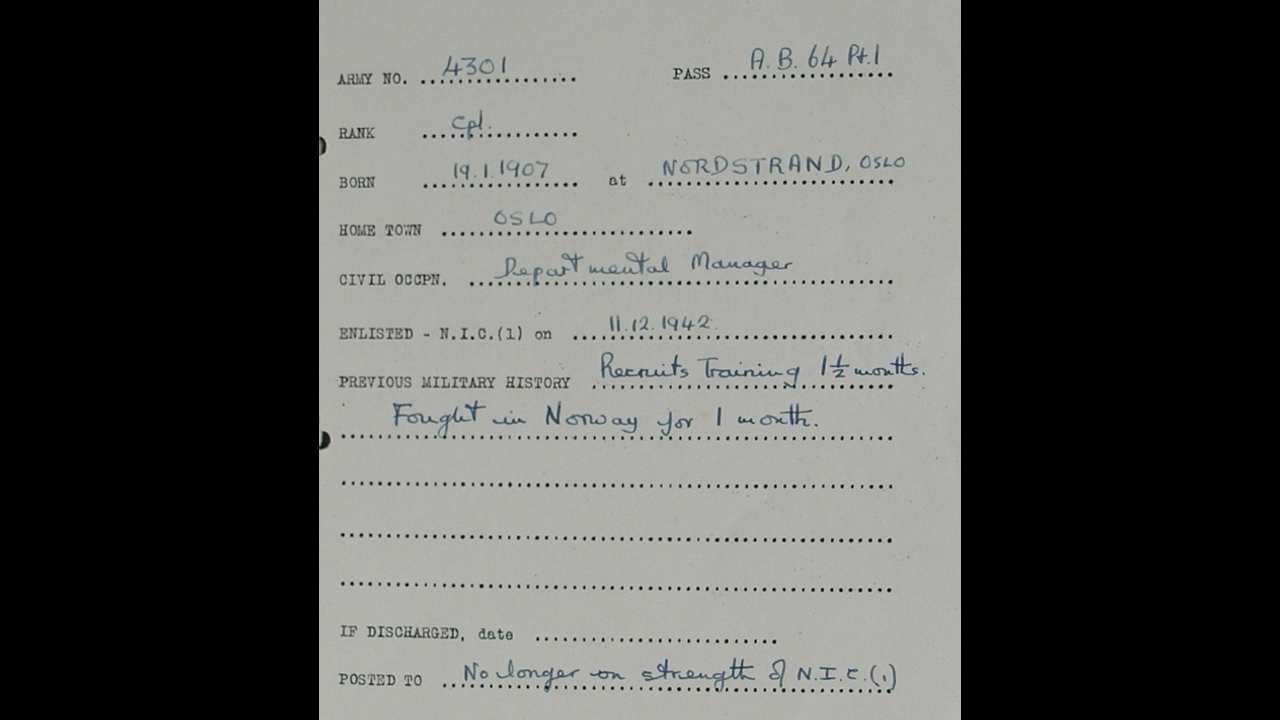 ARMY NO. 4301 PASS A.B. 64 Pt.1
RANK Cpl.
BORN 19.1.1907 at NORDSTRAND, OSLO
HOME TOWN OSLO
CIVIL OCCPN. Departmental Manager
ENLISTED - N.I.C.(1) on 11.12.1942.
PREVIOUS MILITARY HISTORY Recruits Training 1½ months.
Fought in Norway for 1 month.
IF DISCHARGED, date
POSTED TO No longer on strength of N.I.C.(1)